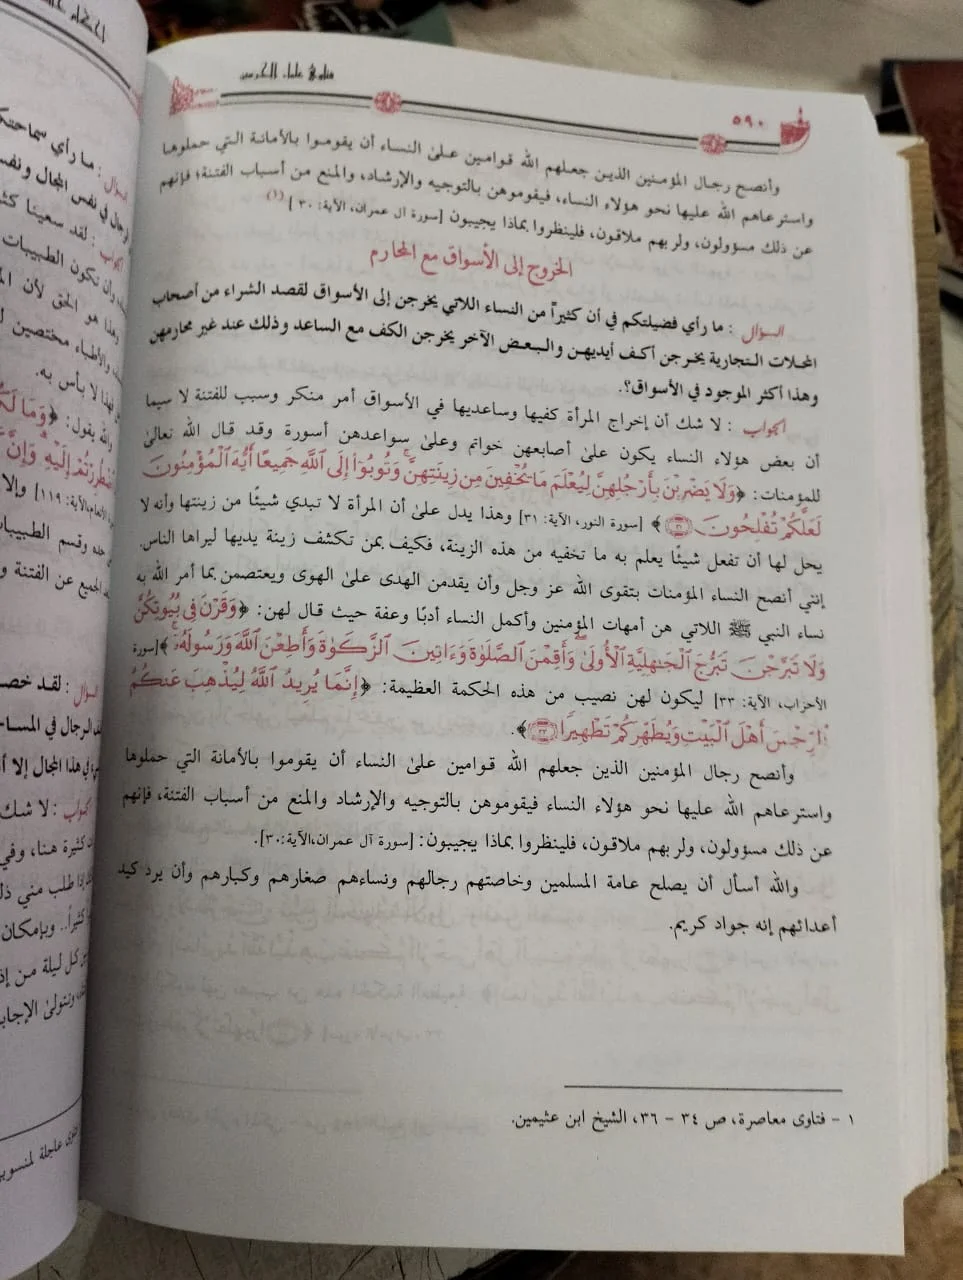 فتاوى علماء الحرمين
٥٩٠
وأنصح رجال المؤمنين الذين جعلهم الله قوامين على النساء أن يقوموا بالأمانة التي حملوها
واسترعاهم الله عليها نحو هؤلاء النساء، فيقوموهن بالتوجيه والإرشاد، والمنع من أسباب الفتنة؛ فإنهم
عن ذلك مسؤولون، ولربهم ملاقون، فلينظروا بماذا يجيبون [سورة آل عمران، الآية: ٣٠](١)
الخروج إلى الأسواق مع المحارم
السؤال : ما رأي فضيلتكم في أن كثيراً من النساء اللاتي يخرجن إلى الأسواق لقصد الشراء من أصحاب
المحلات التجارية يخرجن أكف أيديهن والبعض الآخر يخرجن الكف مع الساعد وذلك عند غير محارمهن
وهذا أكثر الموجود في الأسواق؟.
الجواب : لا شك أن إخراج المرأة كفيها وساعديها في الأسواق أمر منكر وسبب للفتنة لا سيما
أن بعض هؤلاء النساء يكون على أصابعهن خواتم وعلى سواعدهن أسورة وقد قال الله تعالى
للمؤمنات: ﴿وَلَا يَضْرِبْنَ بِأَرْجُلِهِنَّ لِيُعْلَمَ مَا يُخْفِينَ مِن زِينَتِهِنَّ ۚ وَتُوبُوٓا۟ إِلَى ٱللَّهِ جَمِيعًا أَيُّهَ ٱلْمُؤْمِنُونَ
لَعَلَّكُمْ تُفْلِحُونَ ٣١﴾ [سورة النور، الآية: ٣١] وهذا يدل على أن المرأة لا تبدي شيئًا من زينتها وأنه لا
يحل لها أن تفعل شيئًا يعلم به ما تخفيه من هذه الزينة، فكيف بمن تكشف زينة يديها ليراها الناس.
إنني أنصح النساء المؤمنات بتقوى الله عز وجل وأن يقدمن الهدى على الهوى ويعتصمن بما أمر الله به
نساء النبي ﷺ اللاتي هن أمهات المؤمنين وأكمل النساء أدبًا وعفة حيث قال لهن: ﴿وَقَرْنَ فِى بُيُوتِكُنَّ
وَلَا تَبَرَّجْنَ تَبَرُّجَ ٱلْجَٰهِلِيَّةِ ٱلْأُولَىٰ ۖ وَأَقِمْنَ ٱلصَّلَوٰةَ وَءَاتِينَ ٱلزَّكَوٰةَ وَأَطِعْنَ ٱللَّهَ وَرَسُولَهُۥٓ ۚ﴾ [سورة
الأحزاب، الآية: ٣٣] ليكون لهن نصيب من هذه الحكمة العظيمة: ﴿إِنَّمَا يُرِيدُ ٱللَّهُ لِيُذْهِبَ عَنكُمُ
ٱلرِّجْسَ أَهْلَ ٱلْبَيْتِ وَيُطَهِّرَكُمْ تَطْهِيرًا ٣٣﴾.
وأنصح رجال المؤمنين الذين جعلهم الله قوامين على النساء أن يقوموا بالأمانة التي حملوها
واسترعاهم الله عليها نحو هؤلاء النساء فيقوموهن بالتوجيه والإرشاد والمنع من أسباب الفتنة، فإنهم
عن ذلك مسؤولون، ولربهم ملاقون، فلينظروا بماذا يجيبون: [سورة آل عمران،الآية:٣٠].
والله أسأل أن يصلح عامة المسلمين وخاصتهم رجالهم ونساءهم صغارهم وكبارهم وأن يرد كيد
أعدائهم إنه جواد كريم.
١ - فتاوى معاصرة، ص ٣٤ - ٣٦، الشيخ ابن عثيمين.